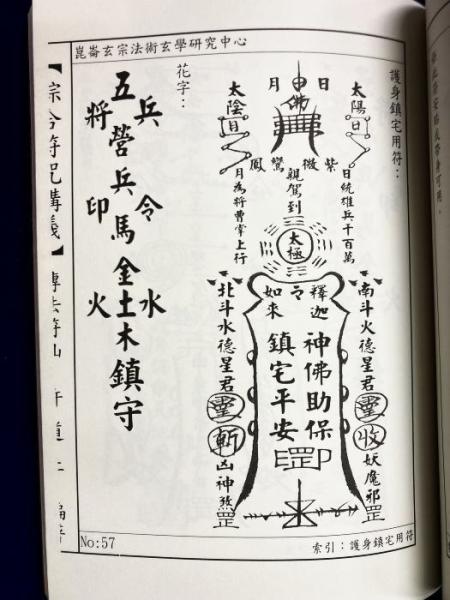 崑崙玄宗法術玄學研究中心
護身鎮宅用符：
太陽
日
日統雄兵千百萬
日 月
佛
紫微 鸞鳳
親駕到
太極
太陰
月
月為將曹掌上行
南斗火德星君
收
妖魔邪罡
釋迦
令
如來
神佛助保
鎮宅平安
北斗水德星君
斬
凶神煞罡
花字：
兵 令 水
五營兵馬金土木鎮守
將 印 火
【綜合符咒講義】
No:57
索引：護身鎮宅用符